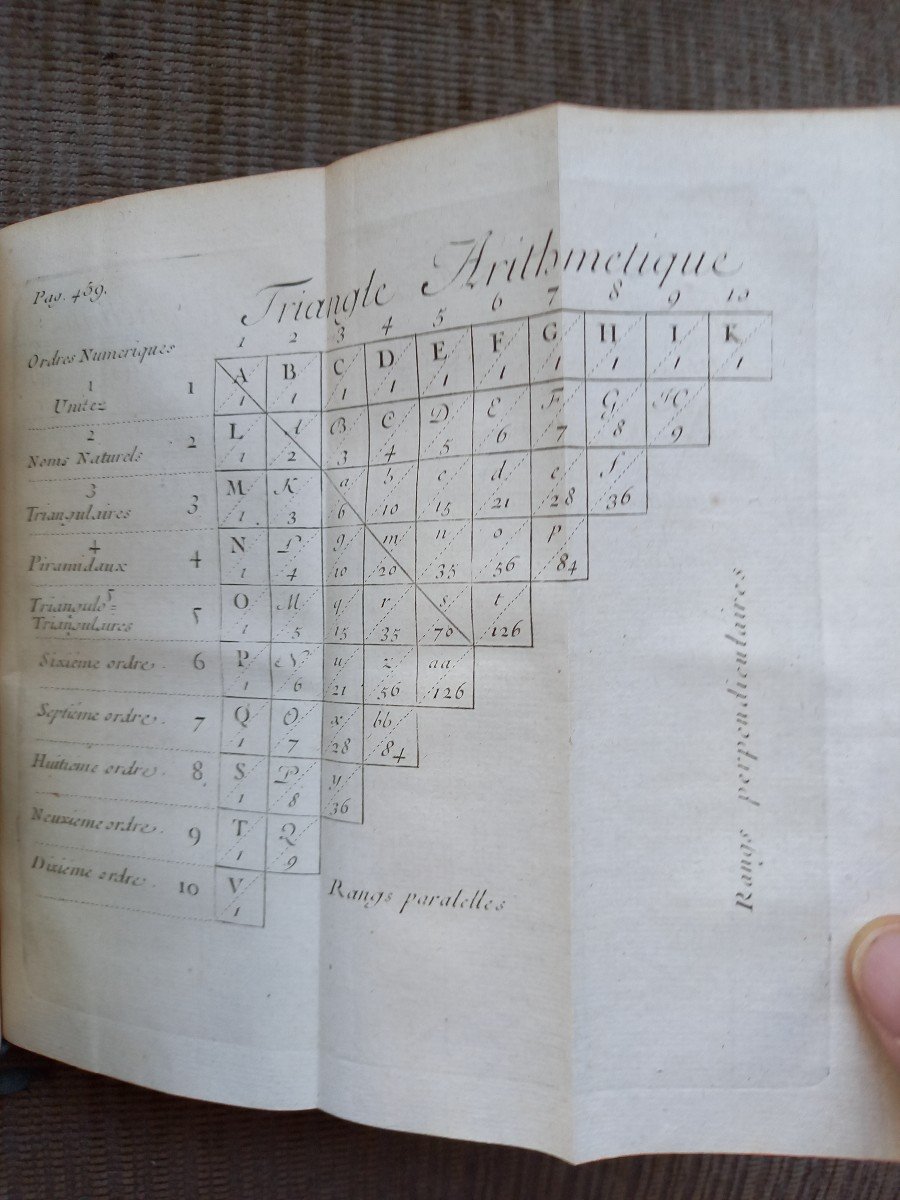 Pag. 459.
Triangle Arithmetique
1 2 3 4 5 6 7 8 9 10
Ordres Numeriques
A B C D E F G H I K
1
Unitez
1
1 1 1 1 1 1 1 1 1 1
L A B C D E F G
2
Noms Naturels
2
1 2 3 4 5 6 7 8 9
M K a b c d e f
3
Triangulaires
3
1 3 6 10 15 21 28 36
N g m n o p
4
Piramidaux
4
1 4 10 20 35 56 84
O M q r s t
5
Triangulo=
Triangulaires
5
1 5 15 35 70 126
P N u z aa
Sixiéme ordre.
6
1 6 21 56 126
Q O x bb
Septiéme ordre.
7
1 7 28 84
S P y
Huitiéme ordre.
8
1 8 36
T Q
Neuxiéme ordre.
9
1 9
V
Dixiéme ordre.
10
1
Rangs paralelles
Rangs perpendiculaires